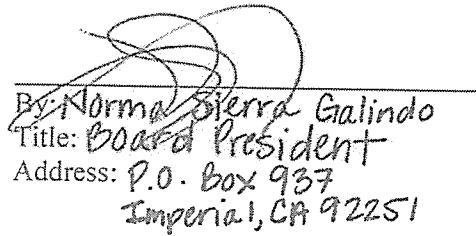 By: Norma Sierra Galindo
Title: Board President
Address: P.O. Box 937
Imperial, CA 92251